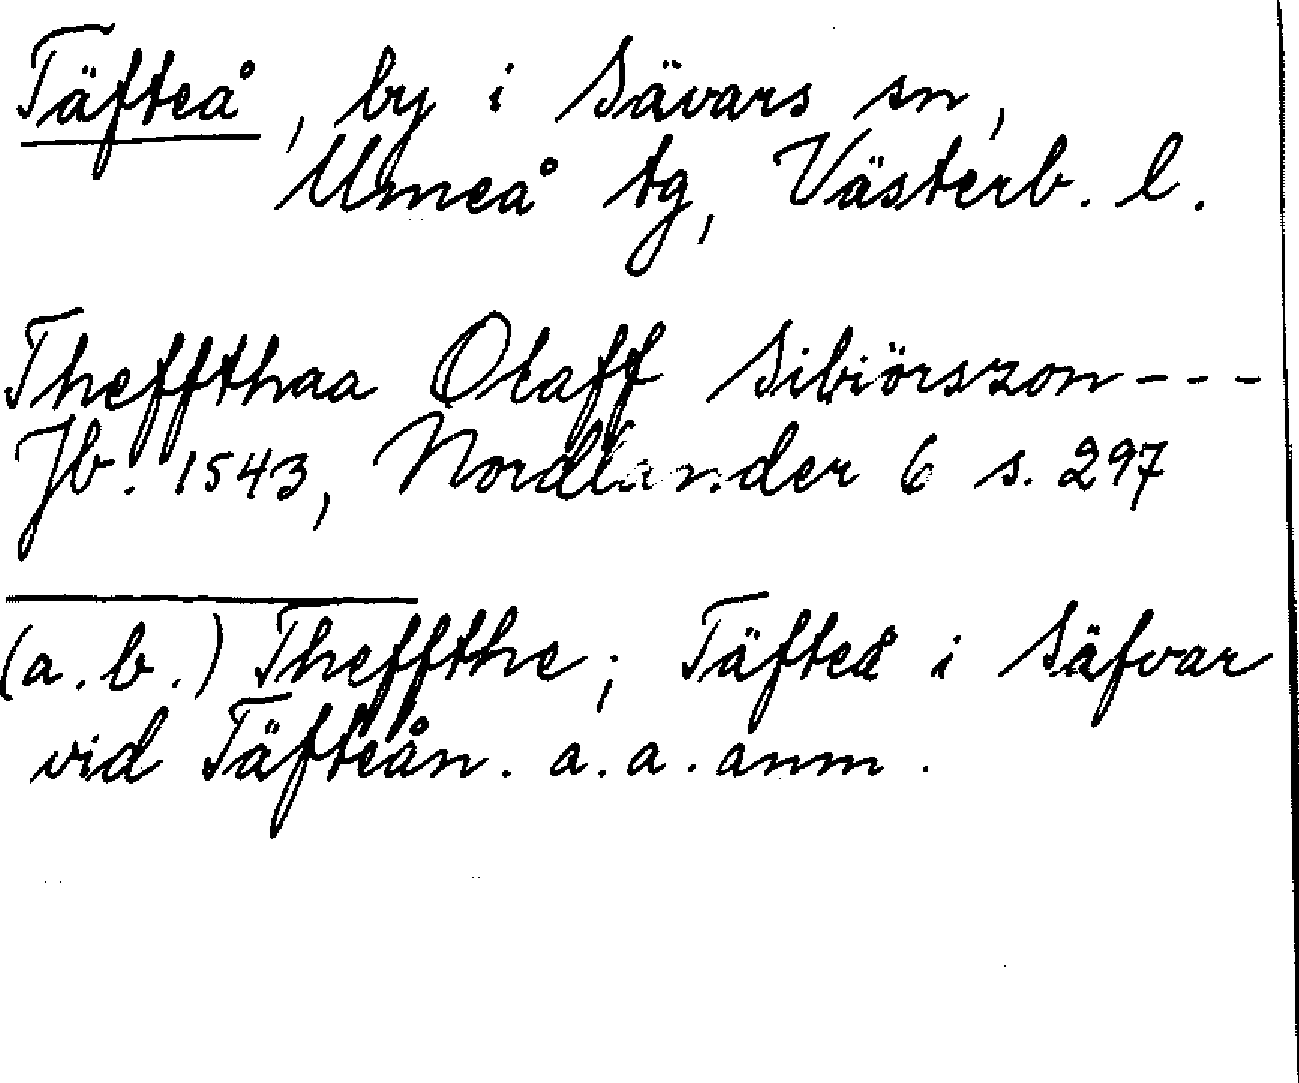 Täfteå, by i Sävars sn,
Umeå tg, Västerb. l.
Theffthaa Olaff Sibiörszon - - -
Jb. 1543, Nordlander 6 s. 297
(a. b.) Theffthe; Täfteå i Säfvar
vid Täfteån. a. a. anm.